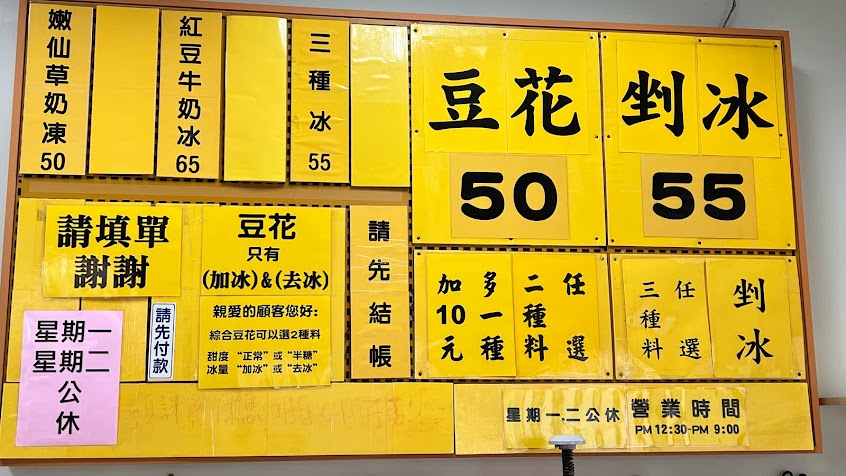 嫩仙草奶凍50
紅豆牛奶冰65
三種冰55
豆花
50
剉冰
55
請填單
謝謝
豆花
只有
(加冰)&(去冰)
親愛的顧客您好:
綜合豆花可以選2種料
甜度 “正常”或“半糖”
冰量 “加冰”或“去冰”
請先結帳
任選
二種料
多一種
加10元
剉冰
任選
三種料
星期一
星期二
公休
請先付款
星期一.二公休
營業時間
PM 12:30-PM 9:00